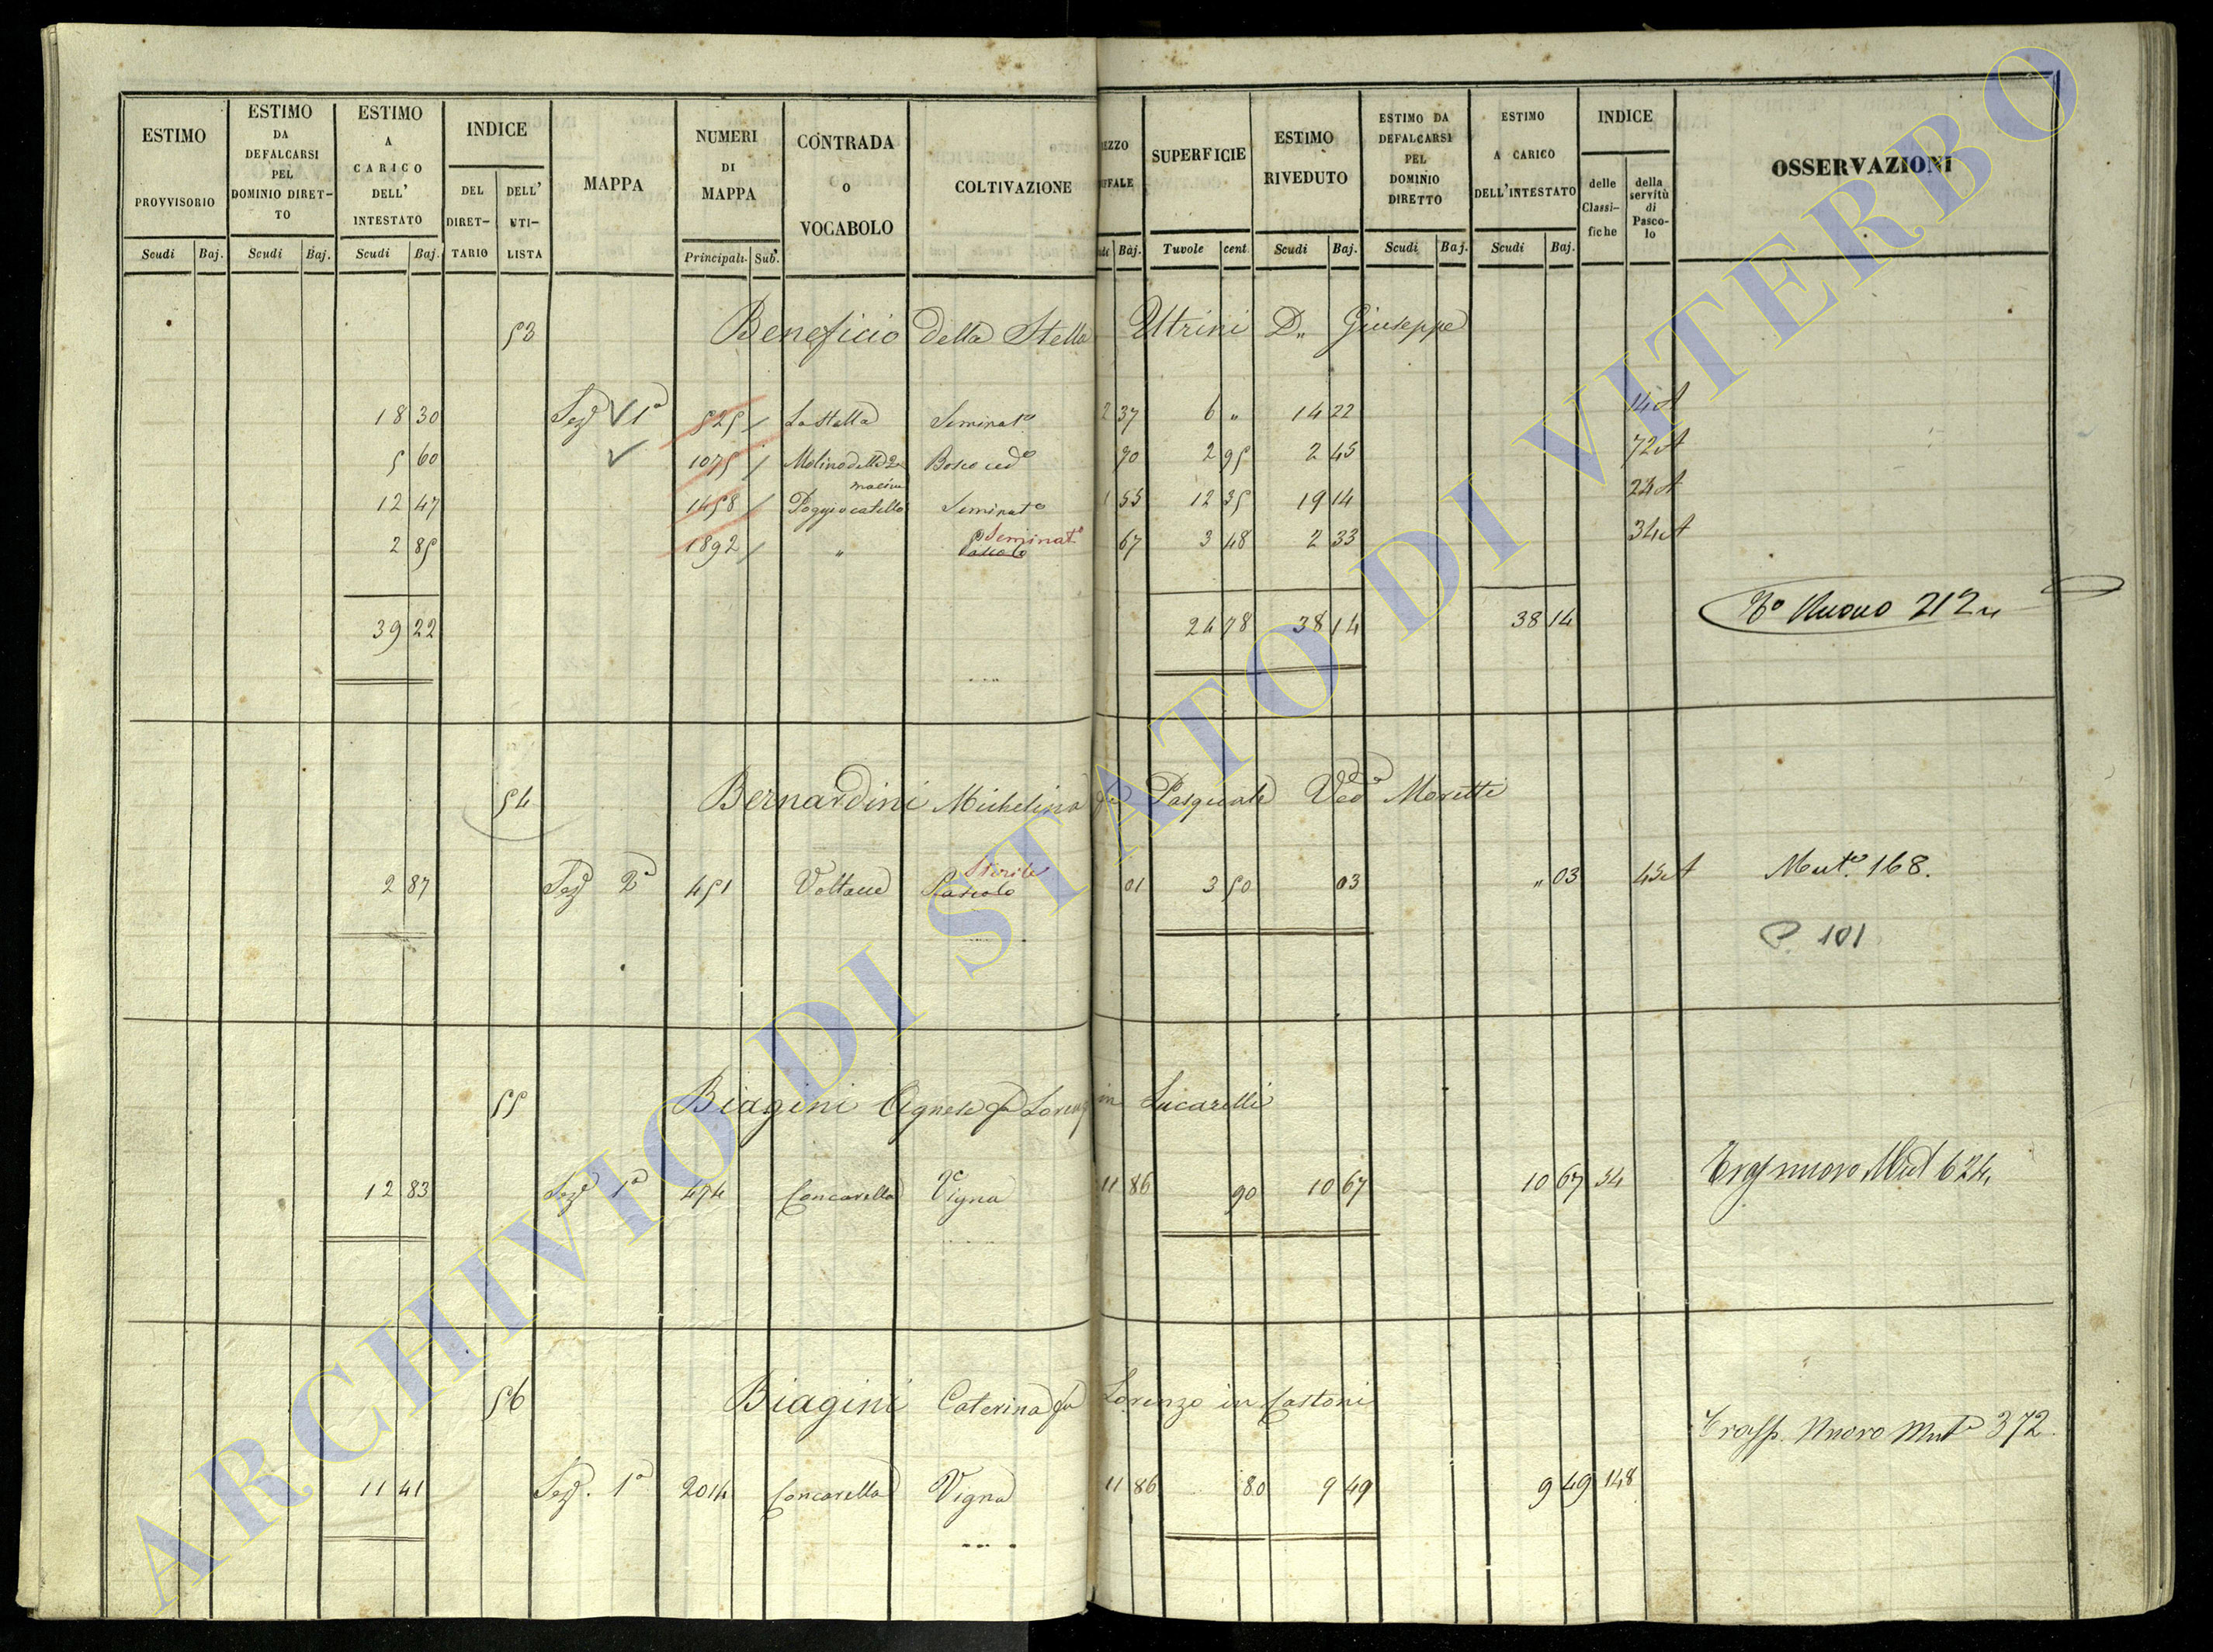 ESTIMO PROVVISORIO Scudi Baj.
ESTIMO DA DEFALCARSI PEL DOMINIO DIRET-TO Scudi Baj.
ESTIMO A CARICO DELL' INTESTATO Scudi Baj.
INDICE DEL DIRET-TARIO DELL' UTI-LISTA
MAPPA
NUMERI DI MAPPA Principali. Sub.
CONTRADA O VOCABOLO
COLTIVAZIONE
EZZO FFALE Baj.
SUPERFICIE Tavole cent.
ESTIMO RIVEDUTO Scudi Baj.
ESTIMO DA DEFALCARSI PEL DOMINIO DIRETTO Scudi Baj.
ESTIMO A CARICO DELL'INTESTATO Scudi Baj.
INDICE delle Classi-fiche della servitù di Pasco-lo
OSSERVAZIONI
53 Beneficio della Stella D. Giuseppe
18 30 Sez 1a 525 La Stella Seminato 2 37 6 " 14 22 14 A
5 60 1075 Molino delle 2 macine Bosco ced 90 2 95 2 45 72 A
12 47 1458 Seminato 1 55 12 35 19 14 24 A
2 85 1892 " Seminato Pascolo 67 3 48 2 33 34 A
39 22 24 78 38 14 38 14 Nuovo 212
54 Bernardini Michelina fu Pasquale Ved Moretti
2 87 Sez 2a 451 Sterile Pascolo 01 3 50 03 " 03 43 A Mut. 168.
P. 101
55 Biagini Agnese fu Lorenz in Lucarelli
12 83 Sez 1a 474 Concarella Vigna 11 86 90 10 67 10 67 34 nuovo Mut 624
56 Biagini Caterina fu Lorenzo in Castoni
Trasp. Nuovo Mut 372.
11 41 Sez. 1a 2014 Concarella Vigna 11 86 80 9 49 9 49 148
ARCHIVIO DI STATO DI VITERBO